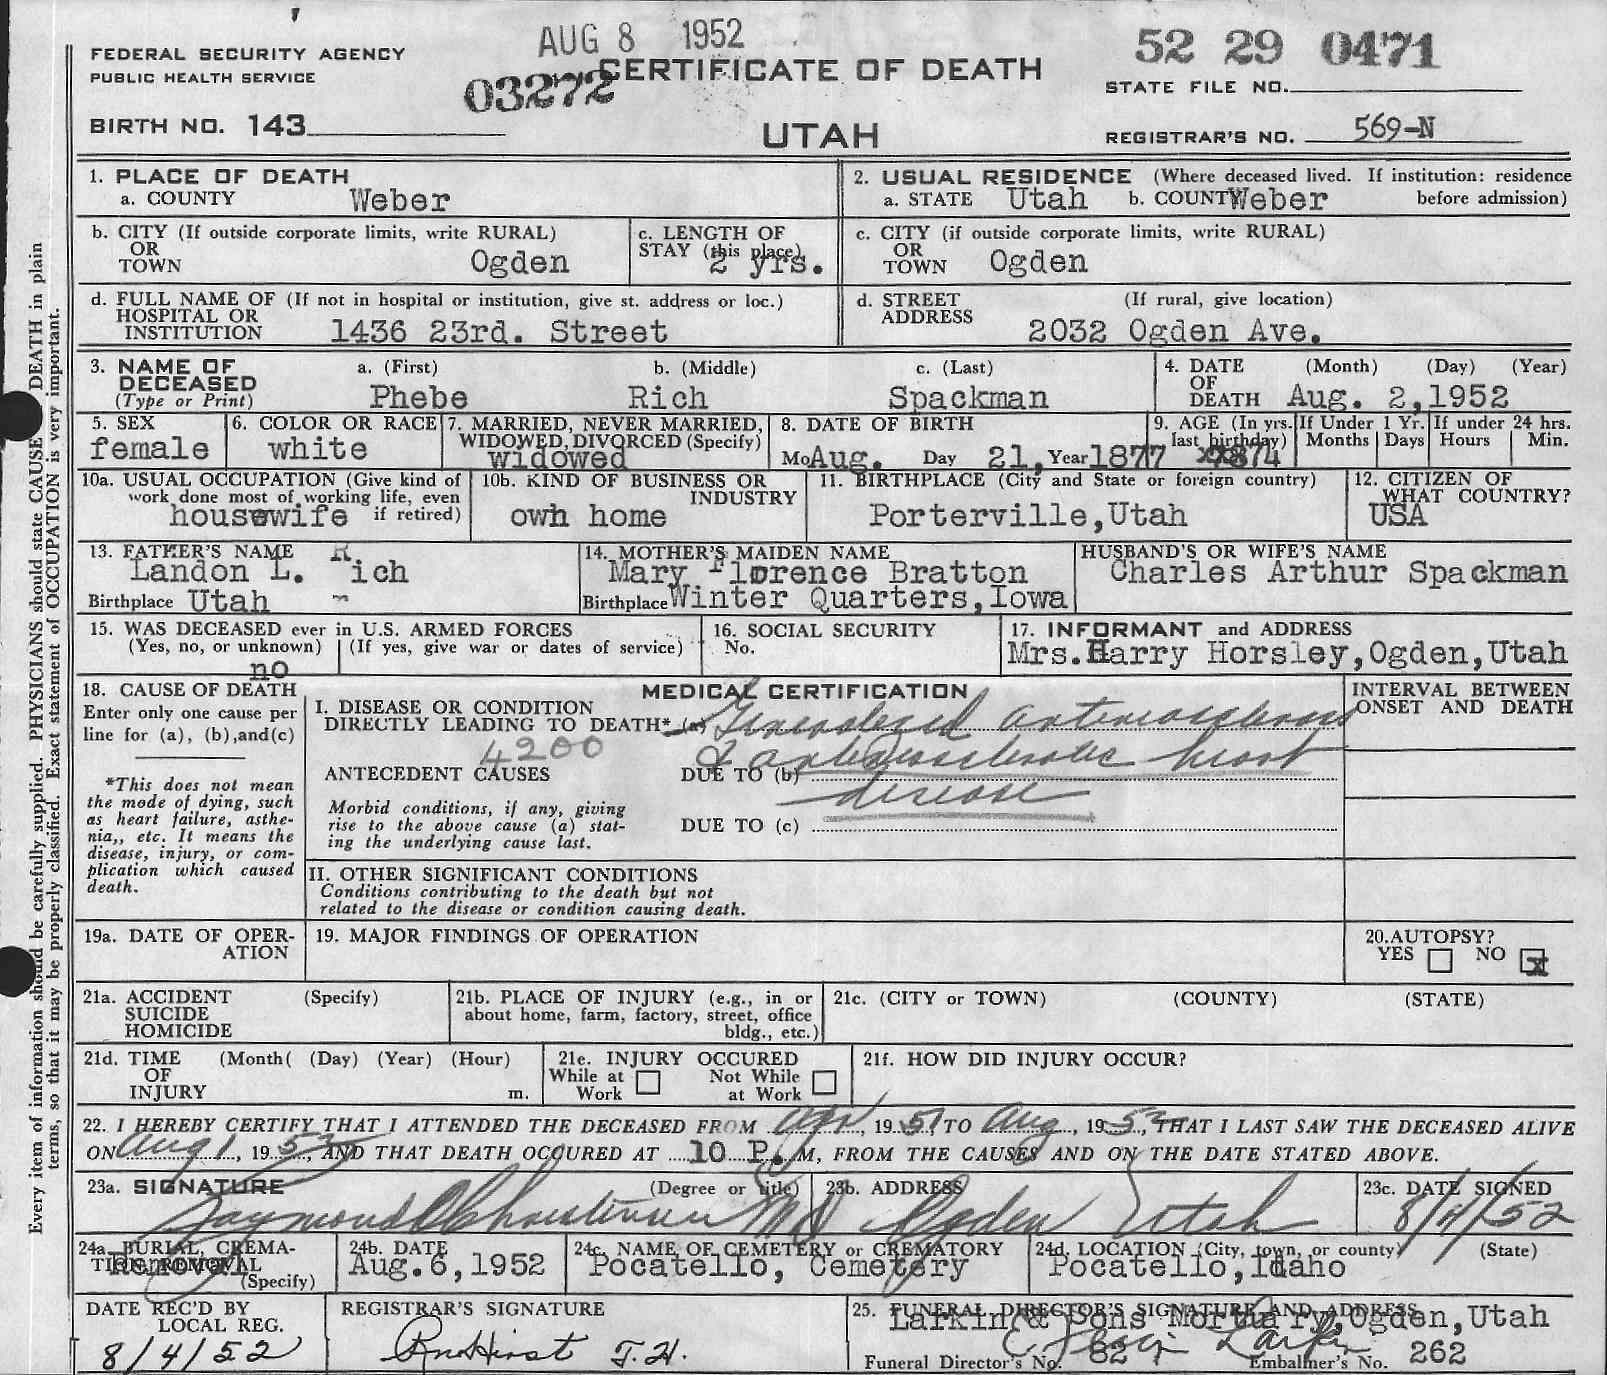 AUG 8 1952
52 29 0471
FEDERAL SECURITY AGENCY
PUBLIC HEALTH SERVICE
03272
CERTIFICATE OF DEATH
STATE FILE NO.
BIRTH NO. 143
UTAH
REGISTRAR'S NO. 569-N
Every item of information should be carefully supplied. PHYSICIANS should state CAUSE DEATH in plain
terms, so that it may be properly classified. Exact statement of OCCUPATION is very important.
1. PLACE OF DEATH
a. COUNTY Weber
2. USUAL RESIDENCE (Where deceased lived. If institution: residence
a. STATE Utah b. COUNTY Weber before admission)
b. CITY (If outside corporate limits, write RURAL)
OR
TOWN Ogden
c. LENGTH OF
STAY (this place)
2 yrs.
c. CITY (if outside corporate limits, write RURAL)
OR
TOWN Ogden
d. FULL NAME OF (If not in hospital or institution, give st. address or loc.)
HOSPITAL OR
INSTITUTION 1436 23rd. Street
d. STREET (If rural, give location)
ADDRESS
2032 Ogden Ave.
3. NAME OF a. (First) b. (Middle) c. (Last)
DECEASED
(Type or Print) Phebe Rich Spackman
4. DATE (Month) (Day) (Year)
OF
DEATH Aug. 2,1952
5. SEX
female
6. COLOR OR RACE
white
7. MARRIED, NEVER MARRIED,
WIDOWED, DIVORCED (Specify)
widowed
8. DATE OF BIRTH
Mo Aug. Day 21, Year 1877
9. AGE (In yrs. last birthday)
74
If Under 1 Yr.
Months Days
If under 24 hrs.
Hours Min.
10a. USUAL OCCUPATION (Give kind of
work done most of working life, even
housewife if retired)
10b. KIND OF BUSINESS OR
INDUSTRY
own home
11. BIRTHPLACE (City and State or foreign country)
Porterville,Utah
12. CITIZEN OF
WHAT COUNTRY?
USA
13. FATHER'S NAME
Landon L. Rich
Birthplace Utah
14. MOTHER'S MAIDEN NAME
Mary Florence Bratton
Birthplace Winter Quarters,Iowa
HUSBAND'S OR WIFE'S NAME
Charles Arthur Spackman
15. WAS DECEASED ever in U.S. ARMED FORCES
(Yes, no, or unknown) (If yes, give war or dates of service)
no
16. SOCIAL SECURITY
No.
17. INFORMANT and ADDRESS
Mrs.Harry Horsley,Ogden,Utah
18. CAUSE OF DEATH
Enter only one cause per
line for (a), (b),and(c)
*This does not mean
the mode of dying, such
as heart failure, asthe-
nia,, etc. It means the
disease, injury, or com-
plication which caused
death.
MEDICAL CERTIFICATION
I. DISEASE OR CONDITION
DIRECTLY LEADING TO DEATH* (a) Generalized arteriosclerosis
4200
& arteriosclerotic heart
ANTECEDENT CAUSES DUE TO (b)
disease
Morbid conditions, if any, giving
rise to the above cause (a) stat-
ing the underlying cause last.
DUE TO (c)
INTERVAL BETWEEN
ONSET AND DEATH
II. OTHER SIGNIFICANT CONDITIONS
Conditions contributing to the death but not
related to the disease or condition causing death.
19a. DATE OF OPER-
ATION
19. MAJOR FINDINGS OF OPERATION
20.AUTOPSY?
YES NO x
21a. ACCIDENT (Specify)
SUICIDE
HOMICIDE
21b. PLACE OF INJURY (e.g., in or
about home, farm, factory, street, office
bldg., etc.)
21c. (CITY or TOWN) (COUNTY) (STATE)
21d. TIME (Month( (Day) (Year) (Hour)
OF
INJURY m.
21e. INJURY OCCURED
While at Not While
Work at Work
21f. HOW DID INJURY OCCUR?
22. I HEREBY CERTIFY THAT I ATTENDED THE DECEASED FROM Apr, 19 51, TO Aug, 19 52, THAT I LAST SAW THE DECEASED ALIVE
ON Aug 1, 19 52, AND THAT DEATH OCCURED AT 10 P. M, FROM THE CAUSES AND ON THE DATE STATED ABOVE.
23a. SIGNATURE (Degree or title)
Raymond Christensen MD
23b. ADDRESS
Ogden Utah
23c. DATE SIGNED
8/4/52
24a. BURIAL, CREMA-
TION, REMOVAL
(Specify)
Removal
24b. DATE
Aug.6,1952
24c. NAME OF CEMETERY or CREMATORY
Pocatello, Cemetery
24d. LOCATION (City, town, or county) (State)
Pocatello,Idaho
DATE REC'D BY
LOCAL REG.
8/4/52
REGISTRAR'S SIGNATURE
25. FUNERAL DIRECTOR'S SIGNATURE AND ADDRESS
Larkin & Sons Mortuary,Ogden,Utah
Larkin
Funeral Director's No. Embalmer's No. 262